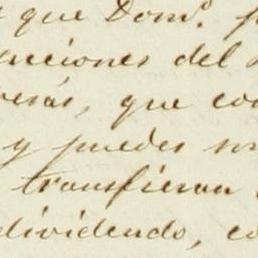 que Domº.
acciones del
verás, que co
y puedes
transfieran
dividendo, co